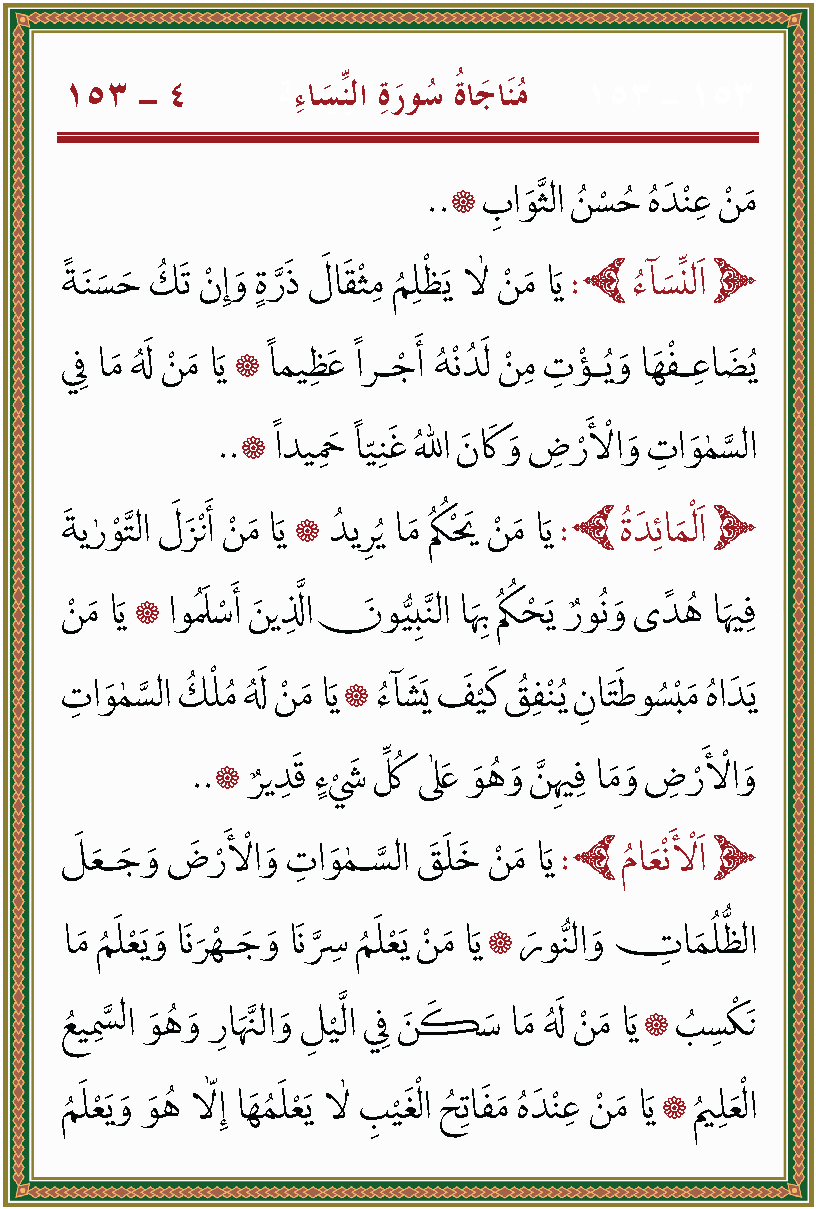 مُنَاجَاةُ سُورَةِ النِّسَاءِ ٤ – ١٥٣
مَنْ عِنْدَهُ حُسْنُ الثَّوَابِ ۞..
﴿ اَلنِّسَآءُ ﴾: يَا مَنْ لَا يَظْلِمُ مِثْقَالَ ذَرَّةٍ وَإِنْ تَكُ حَسَنَةً
يُضَاعِفْهَا وَيُؤْتِ مِنْ لَدُنْهُ أَجْراً عَظِيماً ۞ يَا مَنْ لَهُ مَا فِي
السَّمٰوَاتِ وَالْأَرْضِ وَكَانَ اللهُ غَنِيّاً حَمِيداً ۞..
﴿ اَلْمَائِدَةُ ﴾: يَا مَنْ يَحْكُمُ مَا يُرِيدُ ۞ يَا مَنْ أَنْزَلَ التَّوْرٰيةَ
فِيهَا هُدًى وَنُورٌ يَحْكُمُ بِهَا النَّبِيُّونَ الَّذِينَ أَسْلَمُوا ۞ يَا مَنْ
يَدَاهُ مَبْسُوطَتَانِ يُنْفِقُ كَيْفَ يَشَآءُ ۞ يَا مَنْ لَهُ مُلْكُ السَّمٰوَاتِ
وَالْأَرْضِ وَمَا فِيهِنَّ وَهُوَ عَلٰى كُلِّ شَيْءٍ قَدِيرٌ ۞..
﴿ اَلْأَنْعَامُ ﴾: يَا مَنْ خَلَقَ السَّمٰوَاتِ وَالْأَرْضَ وَجَعَلَ
الظُّلُمَاتِ وَالنُّورَ ۞ يَا مَنْ يَعْلَمُ سِرَّنَا وَجَهْرَنَا وَيَعْلَمُ مَا
نَكْسِبُ ۞ يَا مَنْ لَهُ مَا سَكَنَ فِي الَّيْلِ وَالنَّهَارِ وَهُوَ السَّمِيعُ
الْعَلِيمُ ۞ يَا مَنْ عِنْدَهُ مَفَاتِحُ الْغَيْبِ لَا يَعْلَمُهَا إِلَّا هُوَ وَيَعْلَمُ